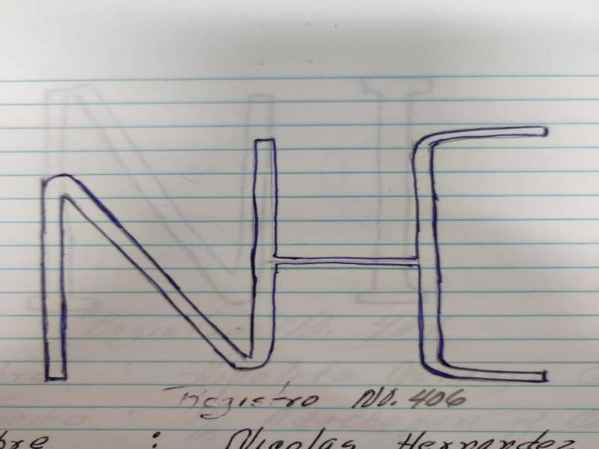 NHC
Registro No. 406
bre : Nicolas Hernandez